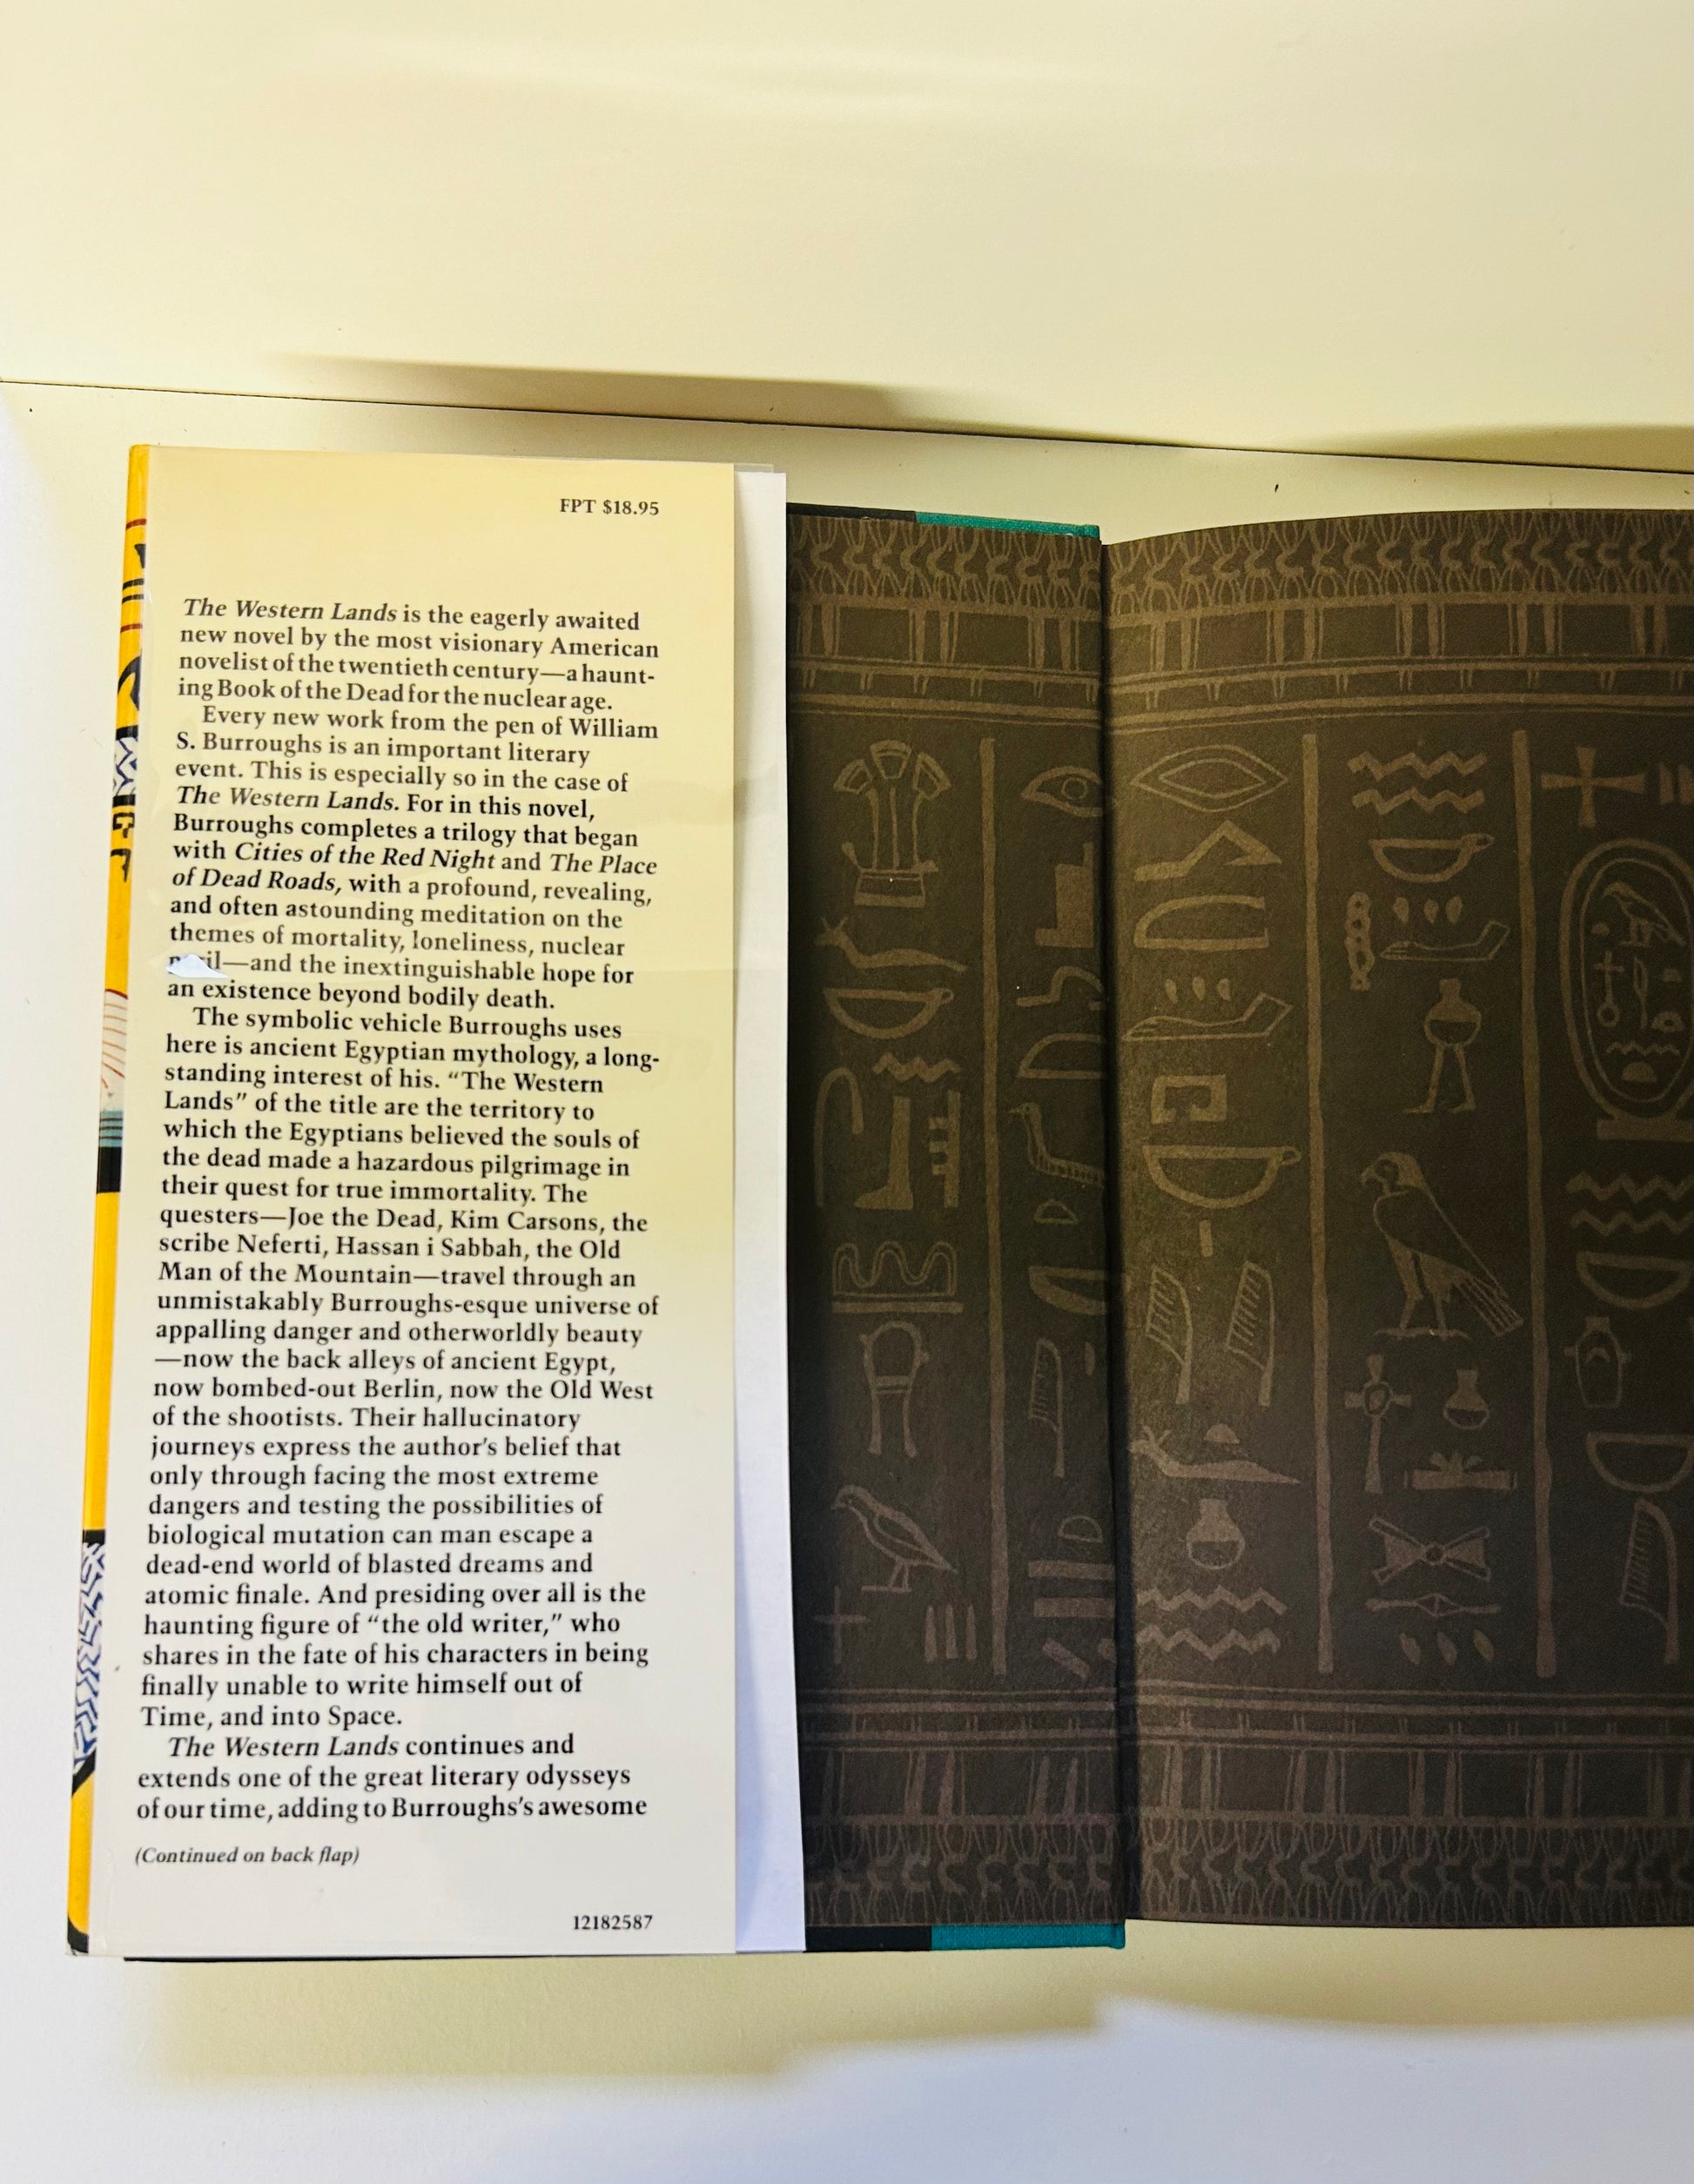 FPT $18.95
The Western Lands is the eagerly awaited
new novel by the most visionary American
novelist of the twentieth century—a haunt-
ing Book of the Dead for the nuclear age.
Every new work from the pen of William
S. Burroughs is an important literary
event. This is especially so in the case of
The Western Lands. For in this novel,
Burroughs completes a trilogy that began
with Cities of the Red Night and The Place
of Dead Roads, with a profound, revealing,
and often astounding meditation on the
themes of mortality, loneliness, nuclear
—and the inextinguishable hope for
an existence beyond bodily death.
The symbolic vehicle Burroughs uses
here is ancient Egyptian mythology, a long-
standing interest of his. “The Western
Lands” of the title are the territory to
which the Egyptians believed the souls of
the dead made a hazardous pilgrimage in
their quest for true immortality. The
questers—Joe the Dead, Kim Carsons, the
scribe Neferti, Hassan i Sabbah, the Old
Man of the Mountain—travel through an
unmistakably Burroughs-esque universe of
appalling danger and otherworldly beauty
—now the back alleys of ancient Egypt,
now bombed-out Berlin, now the Old West
of the shootists. Their hallucinatory
journeys express the author’s belief that
only through facing the most extreme
dangers and testing the possibilities of
biological mutation can man escape a
dead-end world of blasted dreams and
atomic finale. And presiding over all is the
haunting figure of “the old writer,” who
shares in the fate of his characters in being
finally unable to write himself out of
Time, and into Space.
The Western Lands continues and
extends one of the great literary odysseys
of our time, adding to Burroughs’s awesome
(Continued on back flap)
12182587